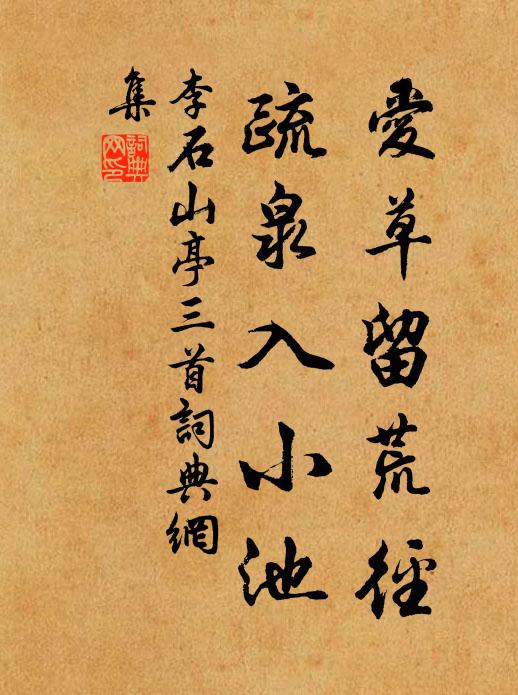 愛草留荒徑
疏泉入小池
李石山亭三首詞典網
集
詞典
网印